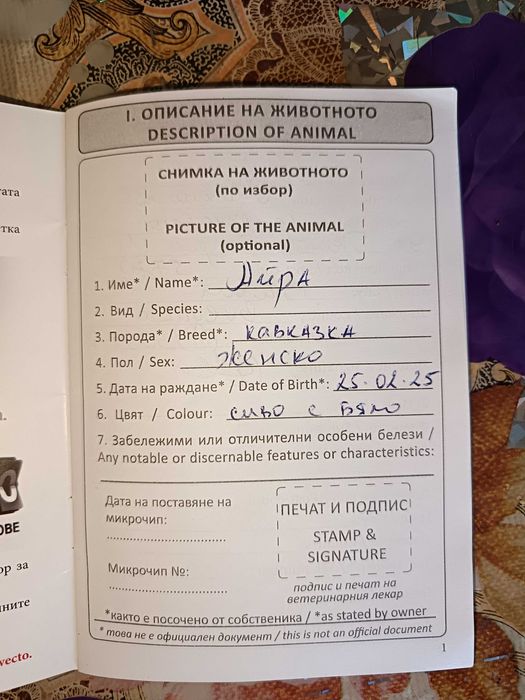 I. ОПИСАНИЕ НА ЖИВОТНОТО
DESCRIPTION OF ANIMAL
СНИМКА НА ЖИВОТНОТО
(по избор)
PICTURE OF THE ANIMAL
(optional)
1. Име* / Name*: Айра
2. Вид / Species:
3. Порода* / Breed*: кавказка
4. Пол / Sex: женско
5. Дата на раждане* / Date of Birth*: 25.02.25
6. Цвят / Colour: сиво с бяло
7. Забележими или отличителни особени белези /
Any notable or discernable features or characteristics:
Дата на поставяне на
микрочип:
Микрочип №:
ПЕЧАТ И ПОДПИС
STAMP &
SIGNATURE
подпис и печат на
ветеринарния лекар
*както е посочено от собственика / *as stated by owner
* това не е официален документ / this is not an official document
1
ОВЕ
ор за
vecto.